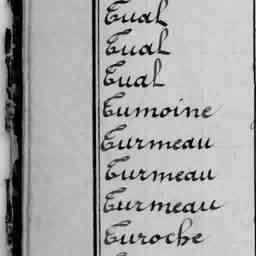 Tual
Tual
Tual
Tumoine
Turmeau
Turmeau
Turmeau
Turoche